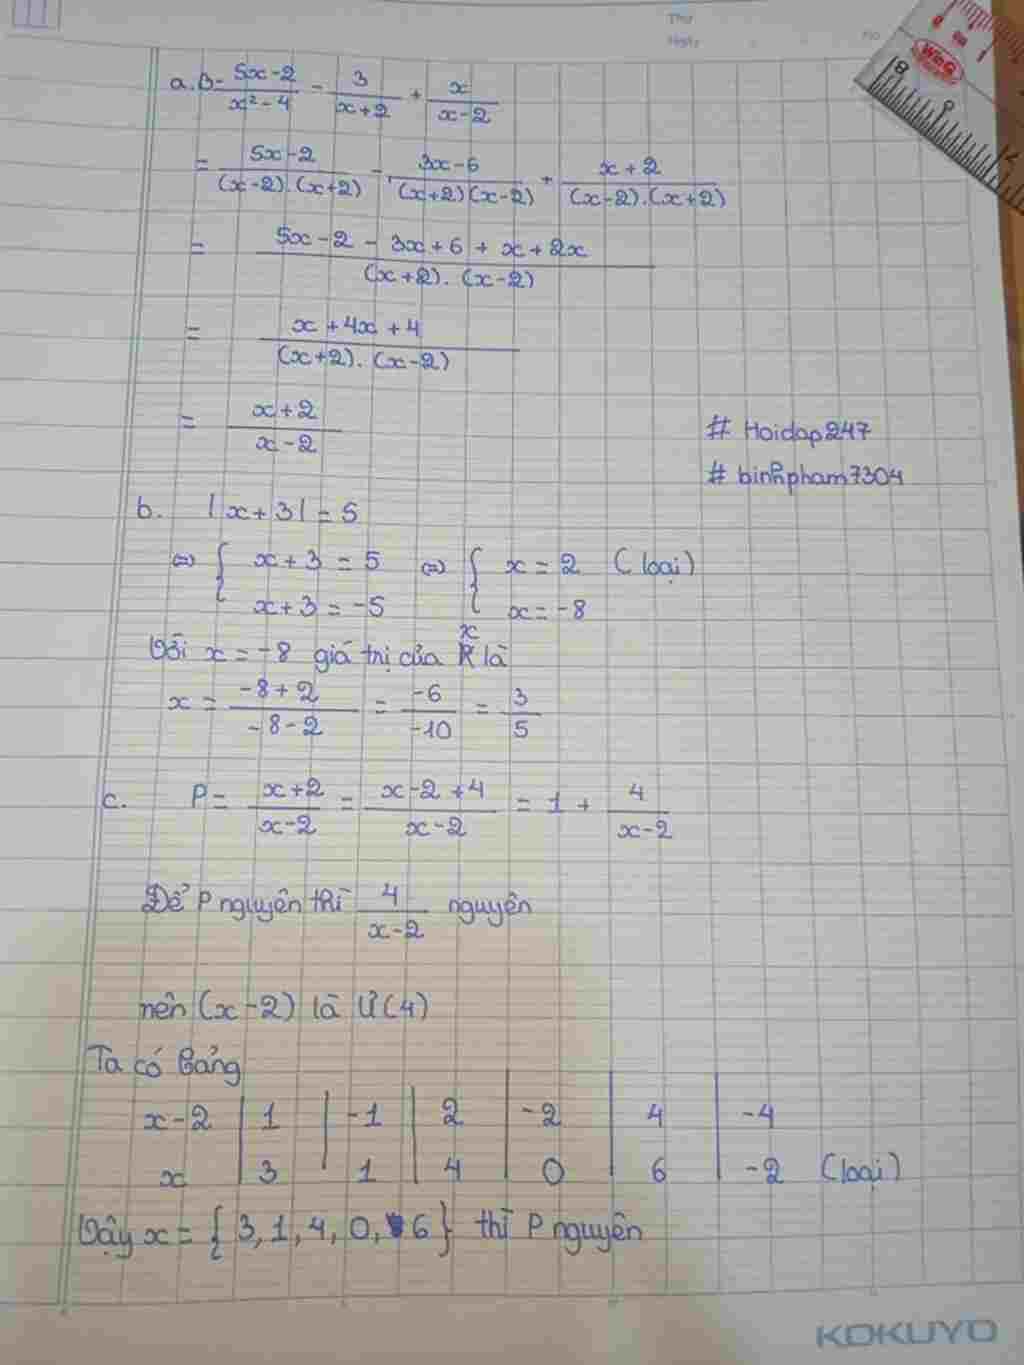 Thứ
Ngày
No
WinQ
a. B = \frac{5x-2}{x^2-4} - \frac{3}{x+2} + \frac{x}{x-2}
= \frac{5x-2}{(x-2).(x+2)} - \frac{3x-6}{(x+2)(x-2)} + \frac{x+2}{(x-2).(x+2)}
= \frac{5x-2-3x+6+x+2x}{(x+2).(x-2)}
= \frac{x+4x+4}{(x+2).(x-2)}
= \frac{x+2}{x-2}
# Hoidap247
# binhpham7304
b. |x+3| = 5
⇔ { x+3 = 5 ⇔ { x = 2 (loại)
x+3 = -5 x = -8
x
Với x = -8 giá trị của là
x = \frac{-8+2}{-8-2} = \frac{-6}{-10} = \frac{3}{5}
c. P = \frac{x+2}{x-2} = \frac{x-2+4}{x-2} = 1 + \frac{4}{x-2}
Để P nguyên thì \frac{4}{x-2} nguyên
nên (x-2) là Ư(4)
Ta có bảng
x-2 | 1 | -1 | 2 | -2 | 4 | -4
x | 3 | 1 | 4 | 0 | 6 | -2 (loại)
Vậy x = { 3, 1, 4, 0, 6 } thì P nguyên
KOKUYO